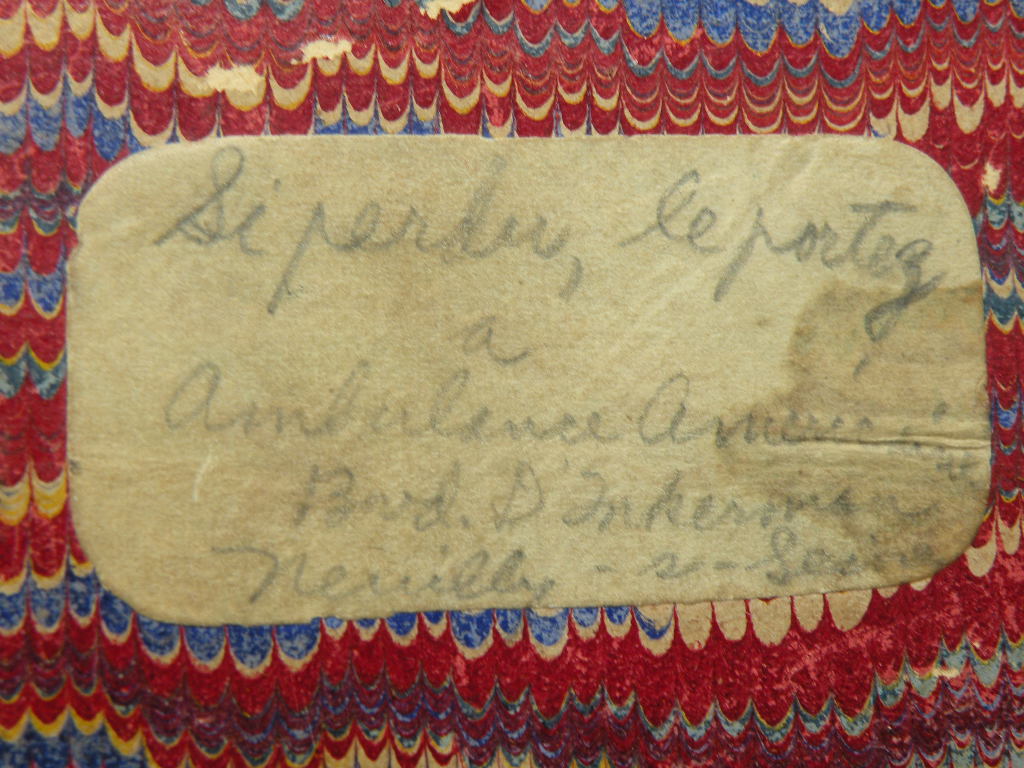 Si perdu, le portez
a
Ambulance Americaine
Bvd. D'Inkerman
Neuilly - s - Seine